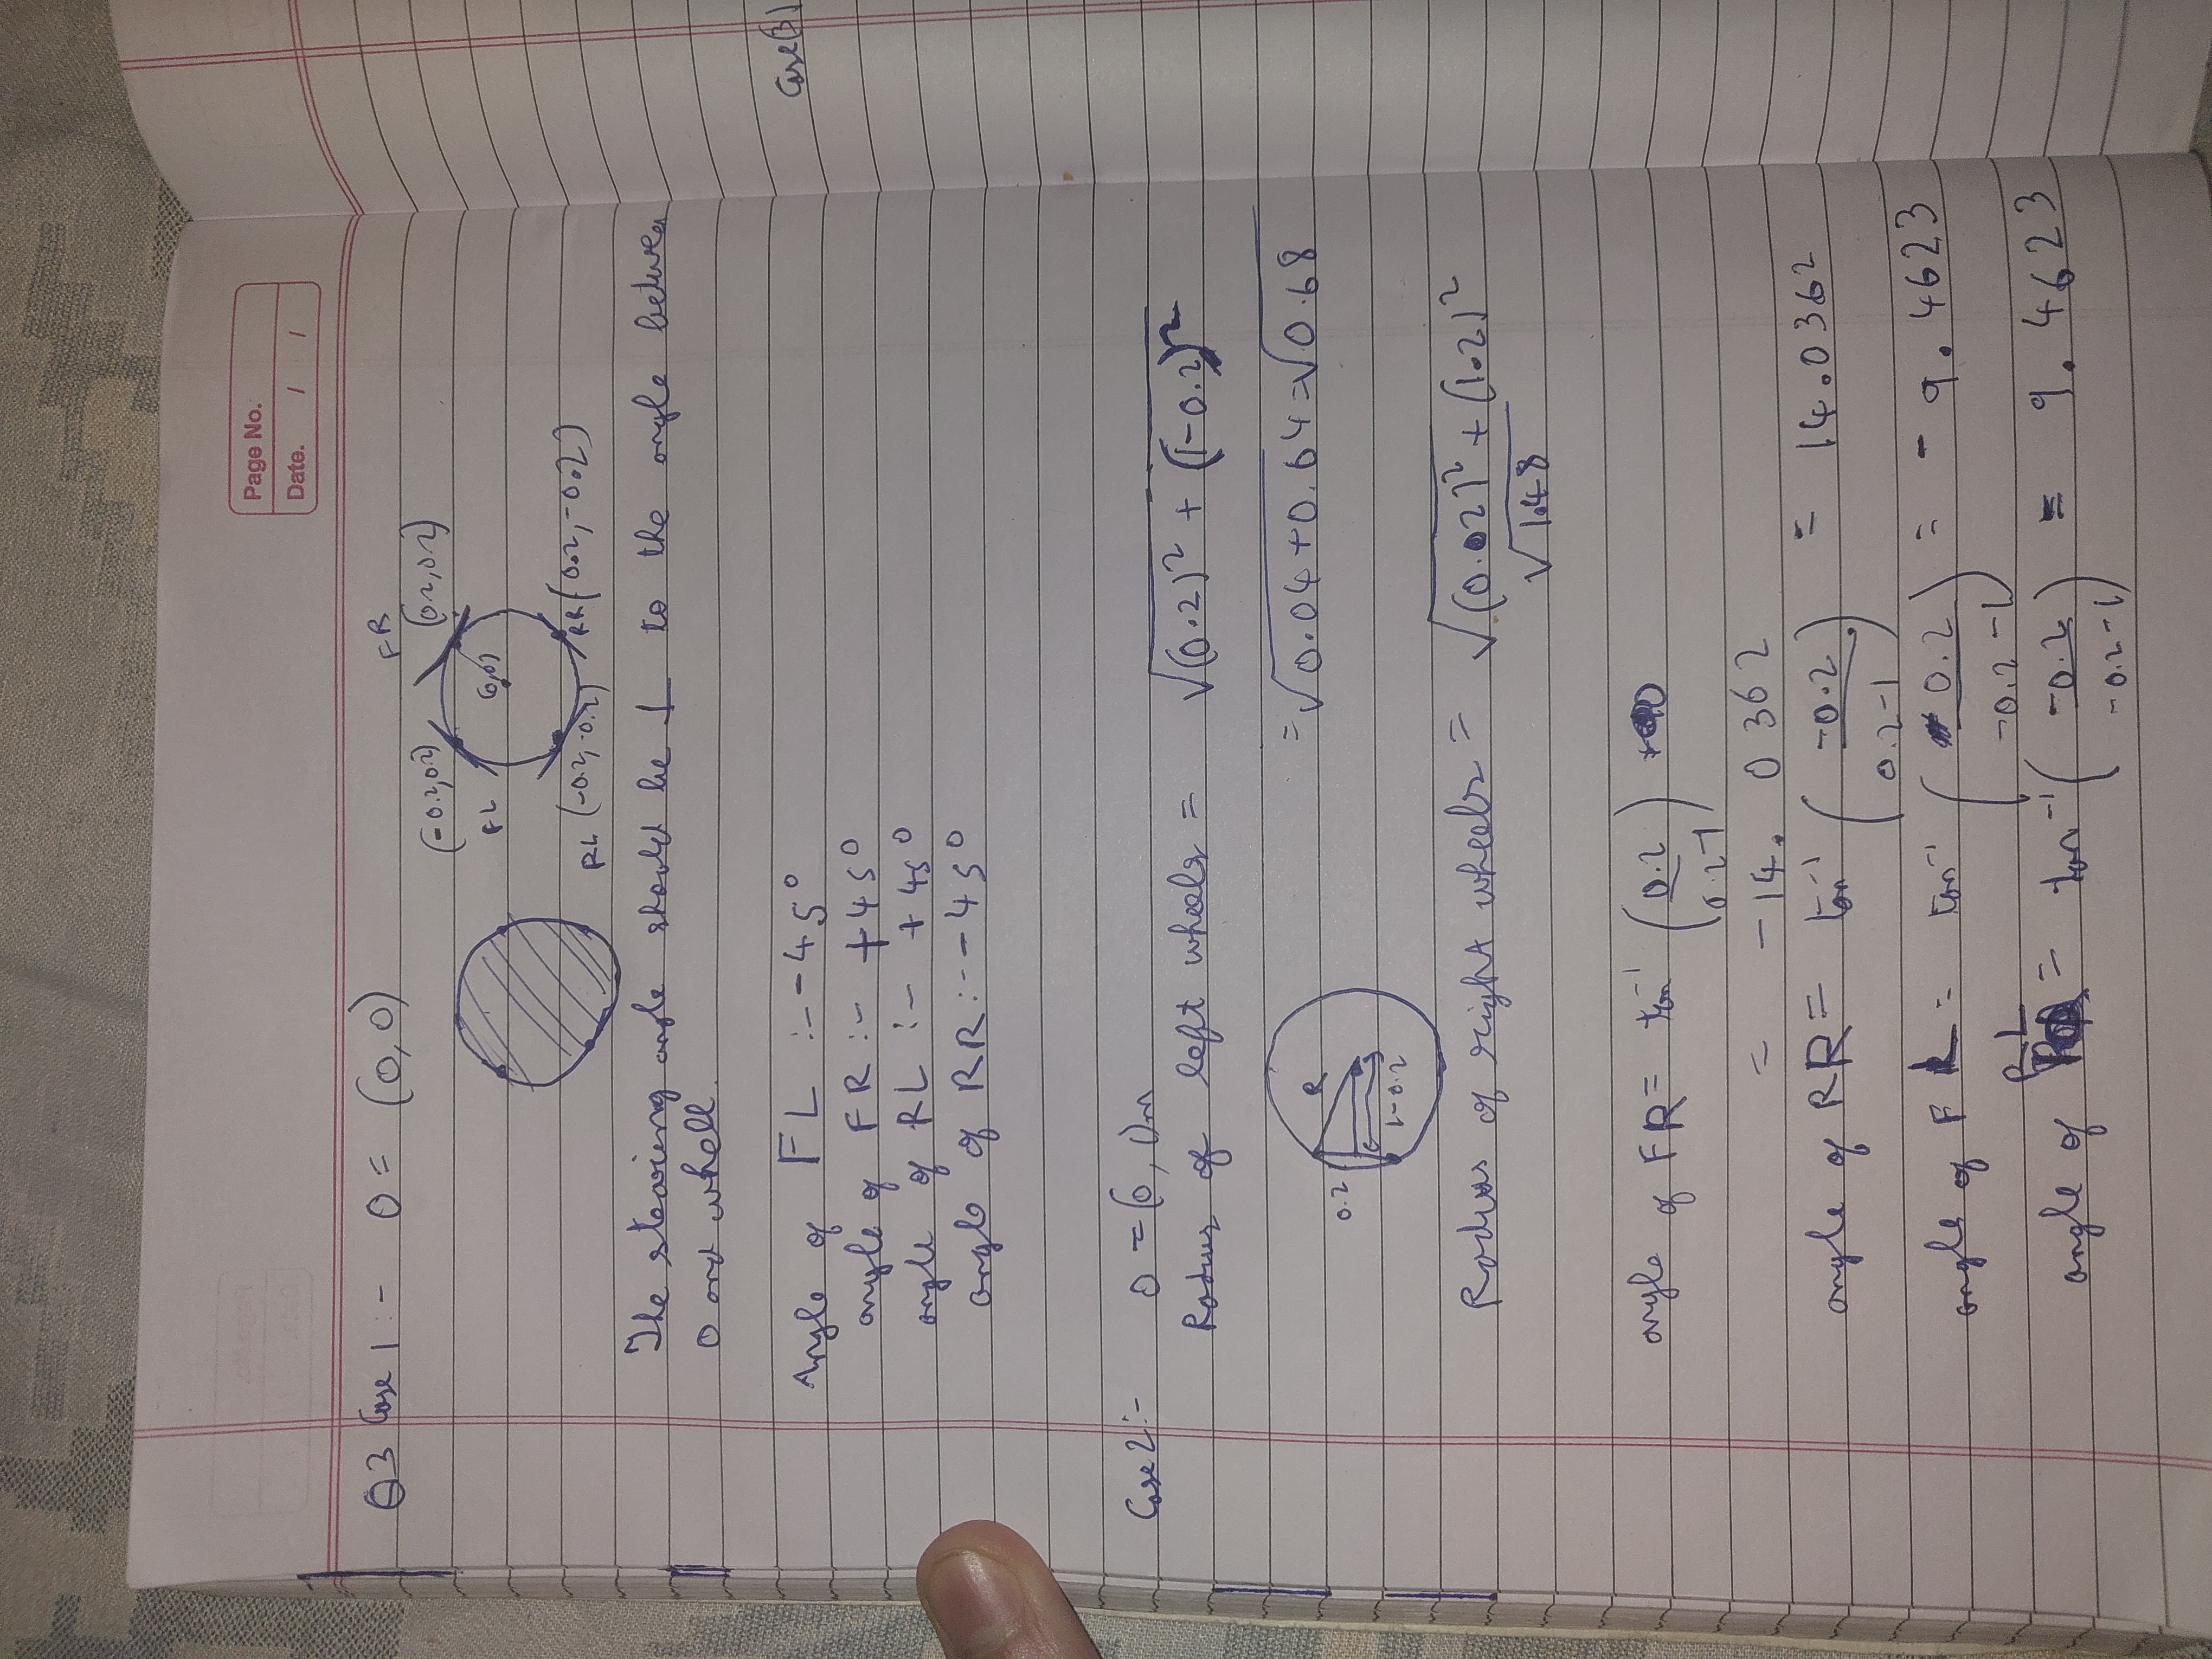 Page No.
Date. / /
Q3 Case 1 :- O = (0,0)
FR
(-0.2,0.2)
(0.2,0.2)
FL
(0,0)
RL (-0.2,-0.2)
RR (0.2,-0.2)
The stearing angle should be ⊥ to the angle between
O and whell.
Angle of FL :- -45°
angle of FR :- +45°
angle of RL :- +45°
angle of RR :- -45°
Case 2 :- O = (0,1)m
Radius of left wheels = √(0.2)² + (1-0.2)²
= √0.04+0.64 = √0.68
0.2
R
1-0.2
Radius of right wheels = √(0.02)² + (1.2)²
√1.48
angle of FR = tan⁻¹ (0.2 / 0.2-1)
= -14.0362
angle of RR = tan⁻¹ (-0.2 / 0.2-1) = 14.0362
angle of FL = tan⁻¹ (0.2 / -0.2-1) = -9.4623
angle of RL = tan⁻¹ (-0.2 / -0.2-1) = 9.4623
Case 3)